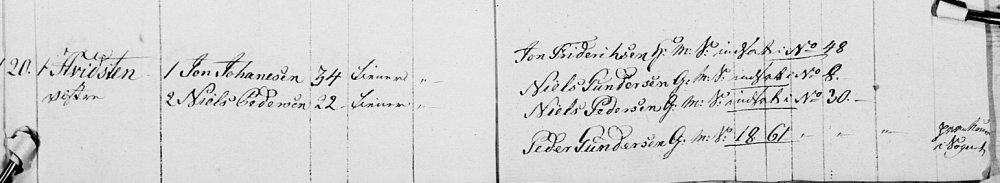 20. 1 Hvidsten 1 Jon Johanesen 34 tienner " –
vestre 2 Niels Pedersen 22 – tienner " –
Jon Friderichsen G. M. S: indsat i No 48
Niels Gundersen G. M. S: indsat i No 8.
Niels Pedersen G. M. S: indsat i No 30. –
Peder Gundersen G. M. S: 18 61 " – " – " –
i Sognet